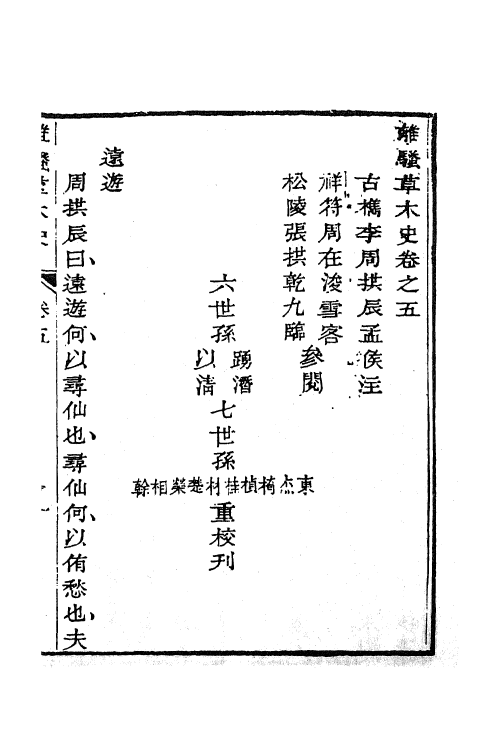 離騷草木史卷之五
古檇李周拱辰孟侯注
祥符周在浚雪客
松陵張拱乾九臨
參閱
六世孫
踴潛
以清
七世孫
東杰椅楨桂材楚榮相榦
重校刊
遠遊
周拱辰曰遠遊何以尋仙也尋仙何以侑愁也夫
離騷草木史
卷五
一